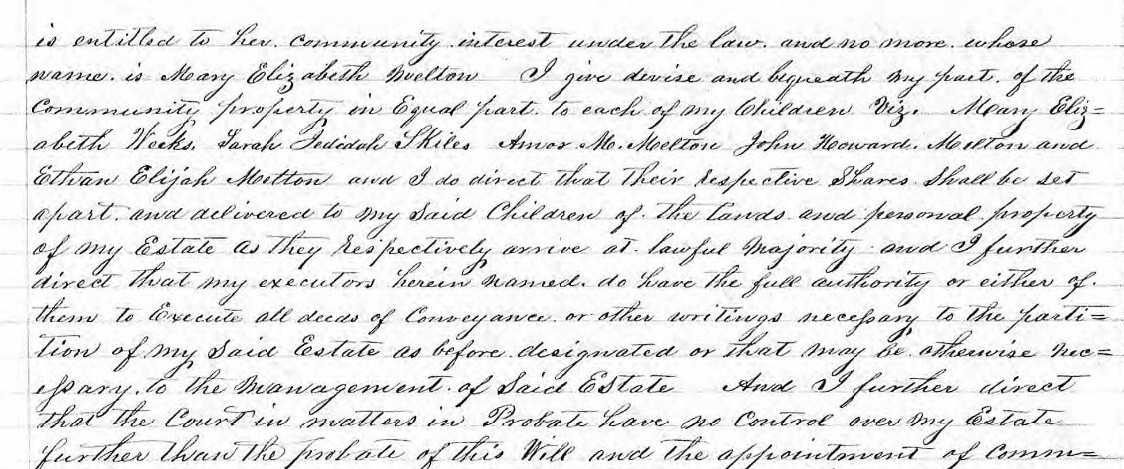 is entitled to her community interest under the law. and no more. whose
name. is Mary Elizabeth Melton I give devise and bequeath my part. of the
Community property in Equal part. to each of my Children Viz. Mary Eliz=
abeth Weeks. Sarah Jedidah Skiles Amos M. Melton John Howard. Melton and
Ethan Elijah Melton and I do direct that their respective Shares Shall be set
apart. and delivered to my Said Children of. the lands and personal property
of my Estate as they respectively arrive at lawful Majority and I further
direct that my executors herein named. do have the full authority or either of.
them to Execute all deeds of Conveyance or other writings necessary to the parti=
tion of my Said Estate as before designated or that may be. otherwise nec=
essary. to the Management. of Said Estate And I further direct
that the Court in matters in Probate have no Control over my Estate
further than the probate of this Will and the appointment of Comm=